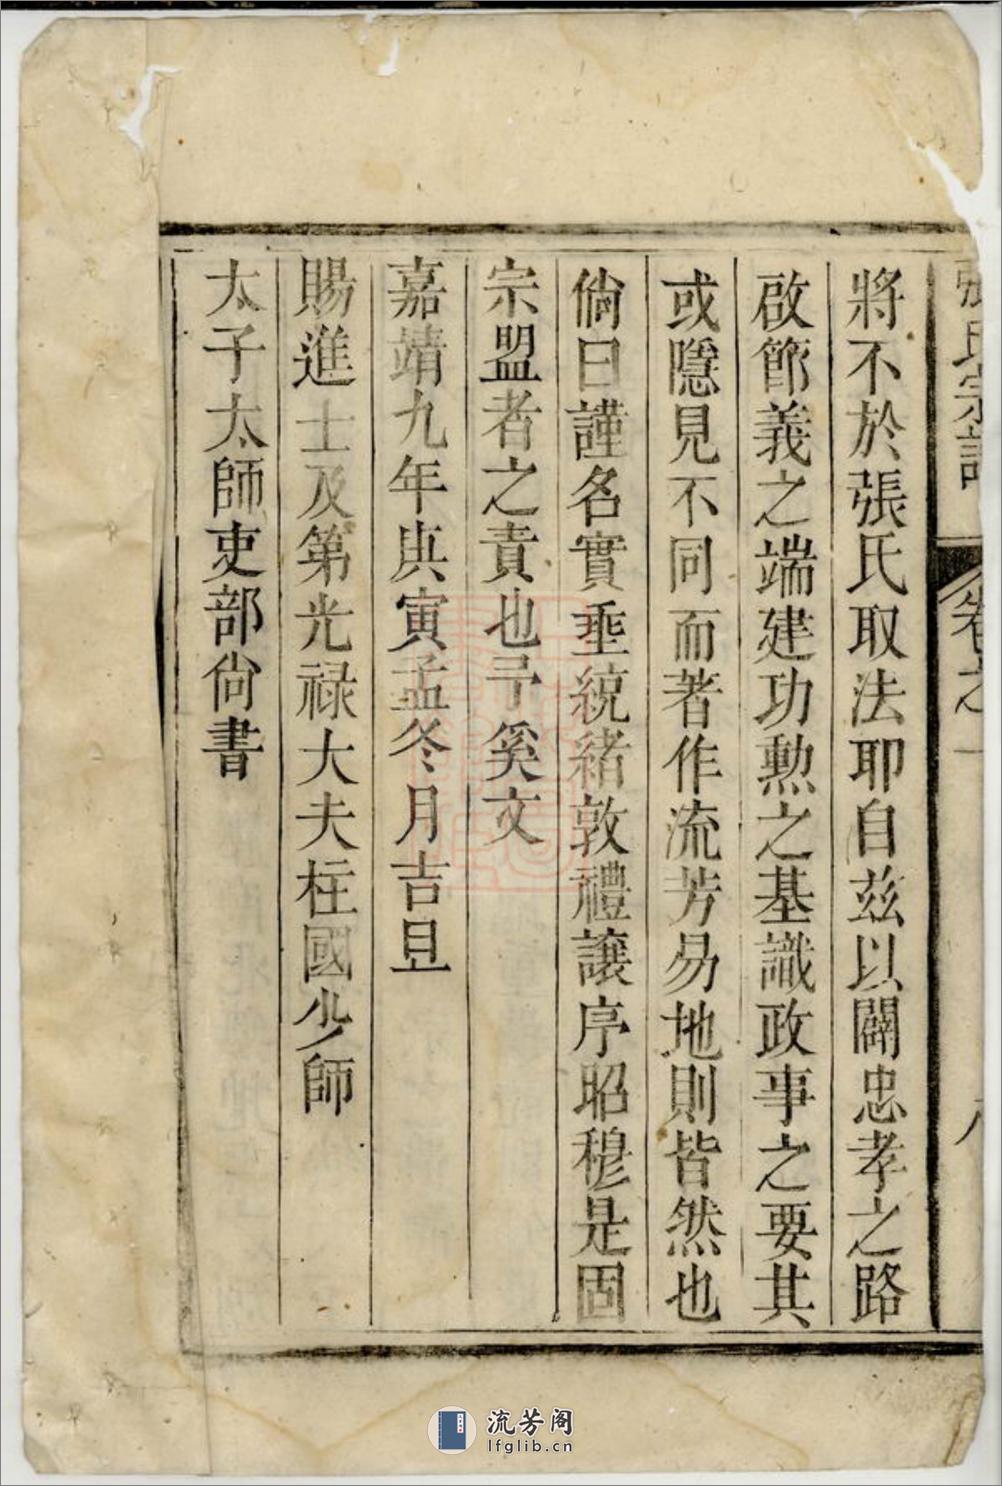 張氏宗譜 卷之一 八
將不於張氏取法耶自茲以闢忠孝之路
啟節義之端建功勲之基識政事之要其
或隱見不同而著作流芳易地則皆然也
倘曰謹名實垂統緒敦禮讓序昭穆是固
宗盟者之責也予奚文
嘉靖九年庚寅孟冬月吉旦
賜進士及第光祿大夫柱國少師
太子太師吏部尙書
流芳阁
lfglib.cn